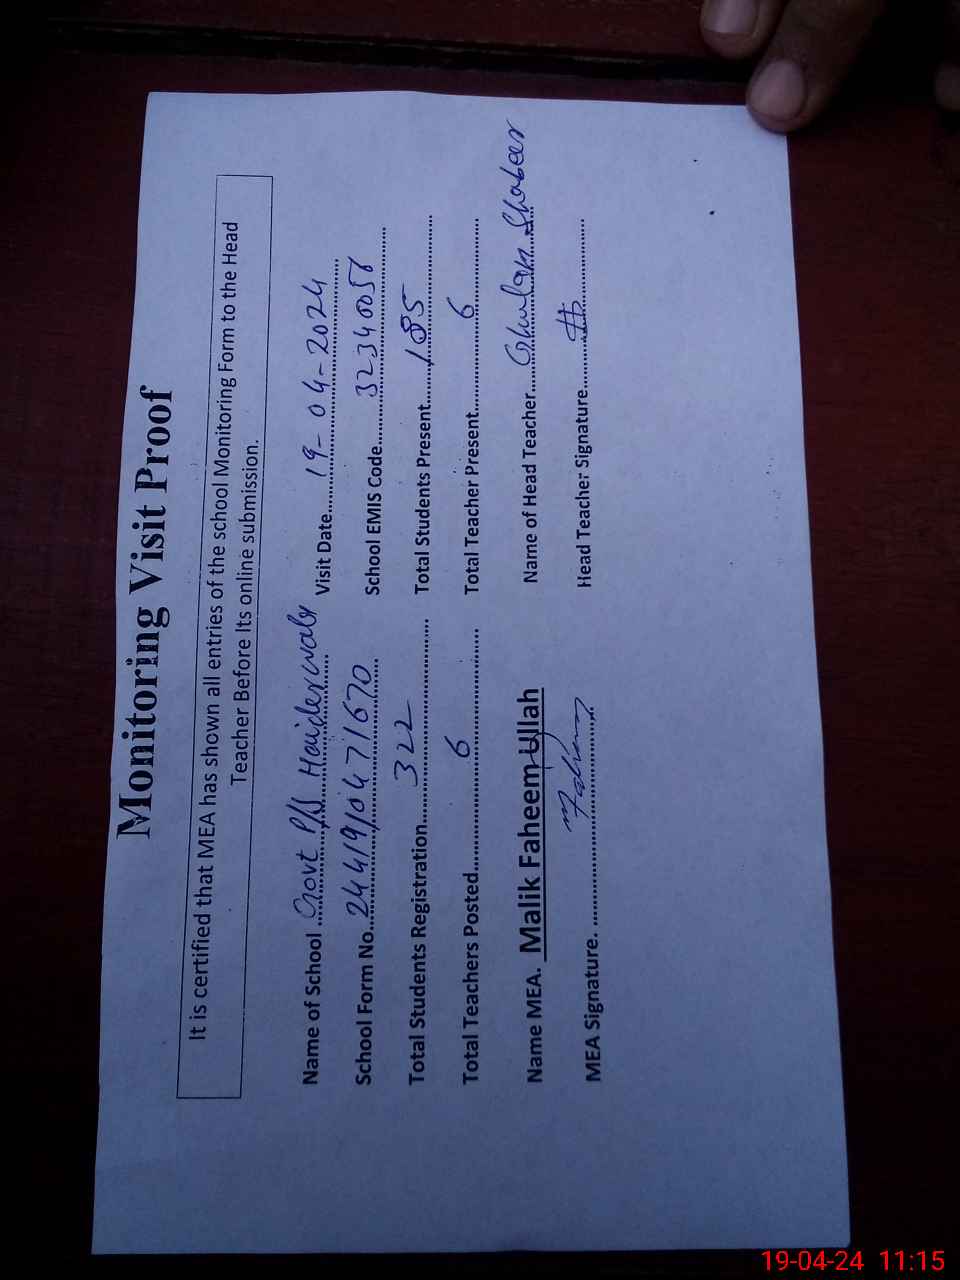 Monitoring Visit Proof
It is certified that MEA has shown all entries of the school Monitoring Form to the Head
Teacher Before Its online submission.
Name of School Govt P/S Haiderwala Visit Date 19-04-2024
School Form No. 2441910471670 School EMIS Code 32340058
Total Students Registration 322 Total Students Present 185
Total Teachers Posted 6 Total Teacher Present 6
Name MEA. Malik Faheem Ullah Name of Head Teacher Ghulam Shabeer
MEA Signature. Head Teacher Signature
19-04-24 11:15